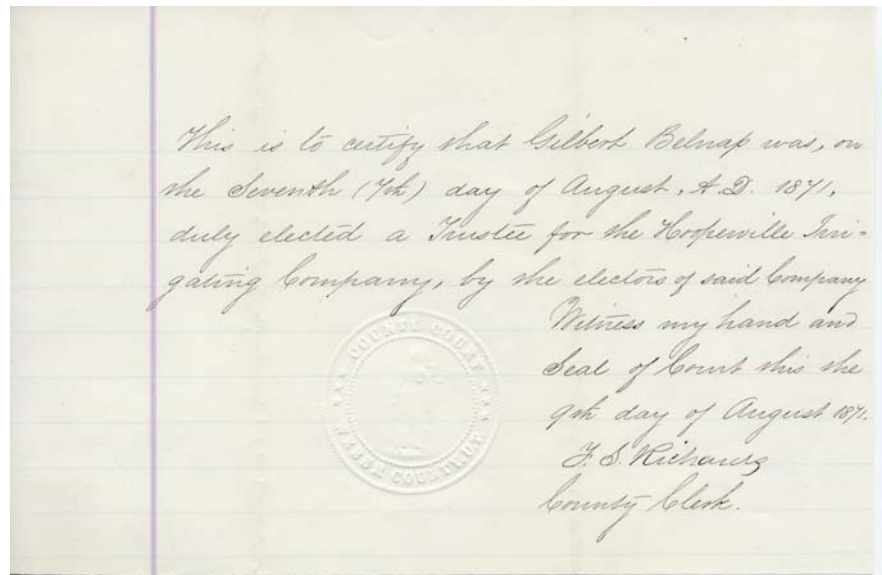 This is to certify that Gilbert Belnap was, on
the Seventh (7th) day of August, A.D. 1871,
duly elected a Trustee for the Hooperville Irri=
gating Company, by the electors of said Company
Witness my hand and
Seal of Court this the
9th day of August 1871.
F. S. Richards
County Clerk.
COUNTY COURT
WEBER COUNTY U.T.